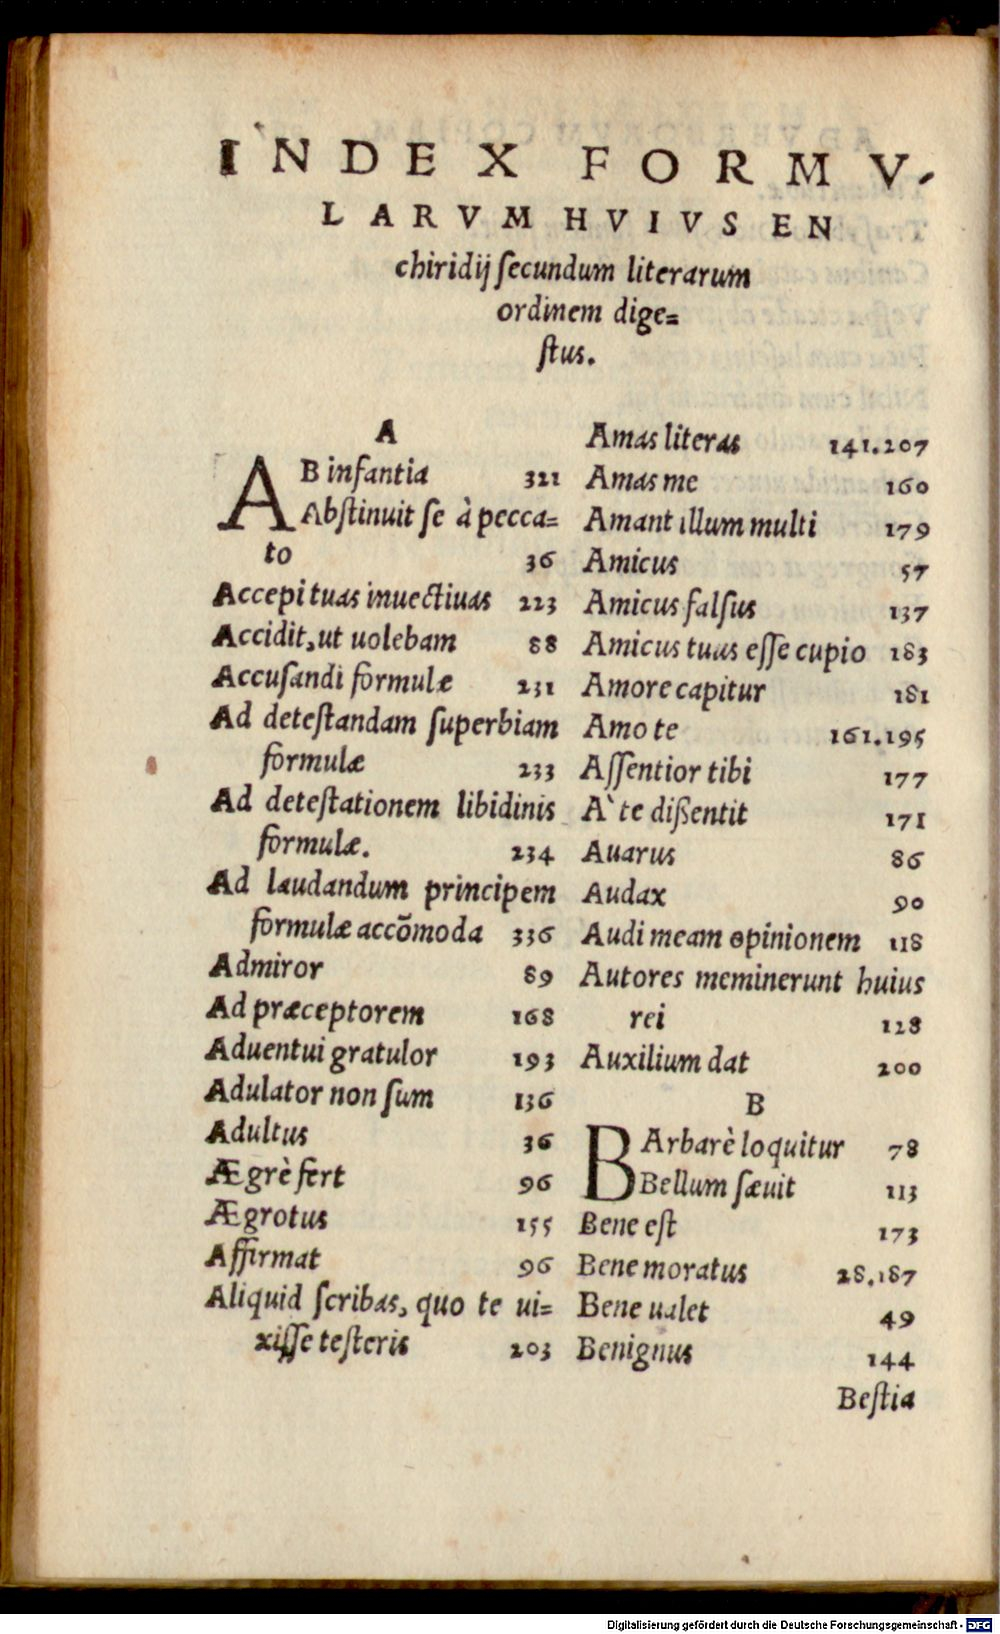 INDEX FORMV-
LARVM HVIVS EN
chiridij ſecundum literarum
ordinem dige=
ſtus.
A
AB infantia 321
Abſtinuit ſe à pecca=
to 36
Accepi tuas inuectiuas 223
Accidit, ut uolebam 88
Accuſandi formulæ 231
Ad deteſtandam ſuperbiam
formulæ 233
Ad deteſtationem libidinis
formulæ. 234
Ad laudandum principem
formulæ accõmoda 336
Admiror 89
Ad præceptorem 168
Aduentui gratulor 193
Adulator non ſum 136
Adultus 36
Ægrè fert 96
Ægrotus 155
Affirmat 96
Aliquid ſcribas, quo te ui=
xiſſe teſteris 203
Amas literas 141.207
Amas me 160
Amant illum multi 179
Amicus 57
Amicus falſus 137
Amicus tuus eſſe cupio 183
Amore capitur 181
Amo te 161.195
Aſſentior tibi 177
A` te dißentit 171
Auarus 86
Audax 90
Audi meam opinionem 118
Autores meminerunt huius
rei 128
Auxilium dat 200
B
BArbarè loquitur 78
Bellum ſæuit 113
Bene eſt 173
Bene moratus 28.187
Bene ualet 49
Benignus 144
Beſtia
Digitalisierung gefördert durch die Deutsche Forschungsgemeinschaft - DFG